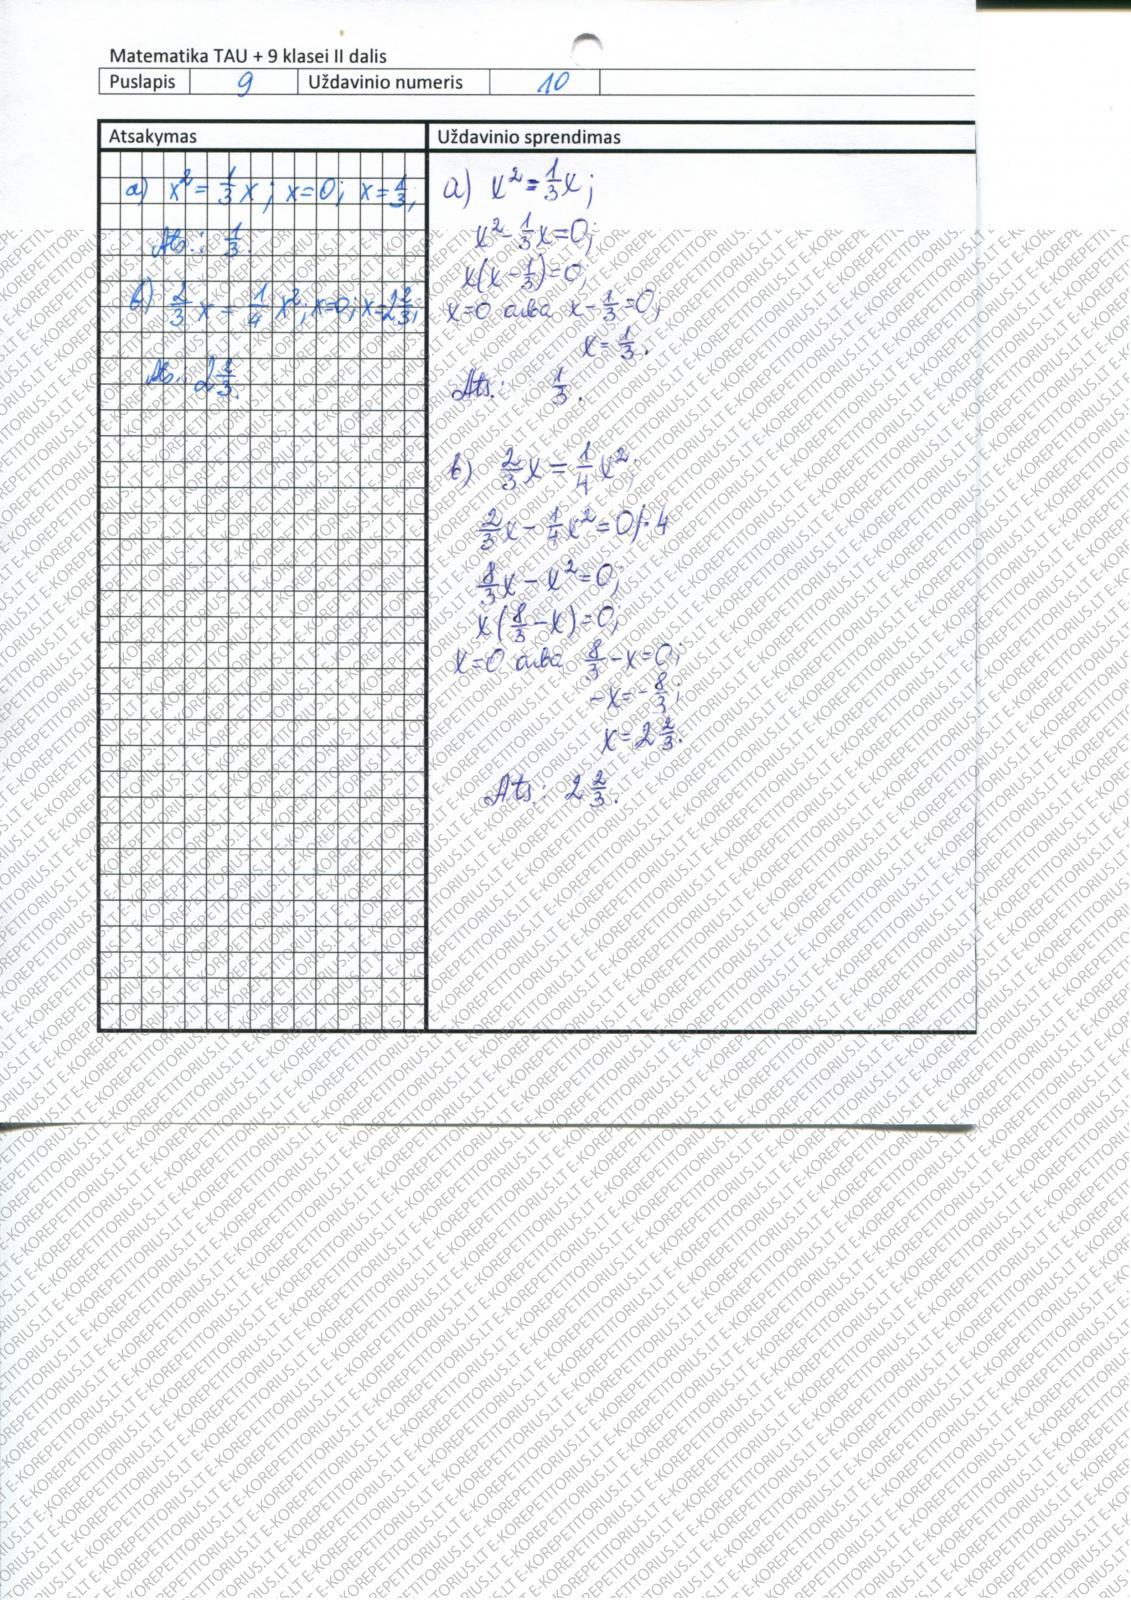 Matematika TAU + 9 klasei II dalis
Puslapis 9 Uždavinio numeris 10
Atsakymas
a) x² = 1/3 x; x=0; x=1/3;
Ats.: 1/3.
b) 2/3 x = 1/4 x²; x=0; x=2 2/3;
Ats.: 2 2/3.
Uždavinio sprendimas
a) x² = 1/3 x;
x² - 1/3 x = 0;
x(x - 1/3) = 0;
x=0 arba x - 1/3 = 0;
x = 1/3.
Ats.: 1/3.
b) 2/3 x = 1/4 x²;
2/3 x - 1/4 x² = 0 /· 4
8/3 x - x² = 0;
x(8/3 - x) = 0;
x=0 arba 8/3 - x = 0;
-x = -8/3;
x = 2 2/3.
Ats.: 2 2/3.
E-KOREPETITORIUS.LT